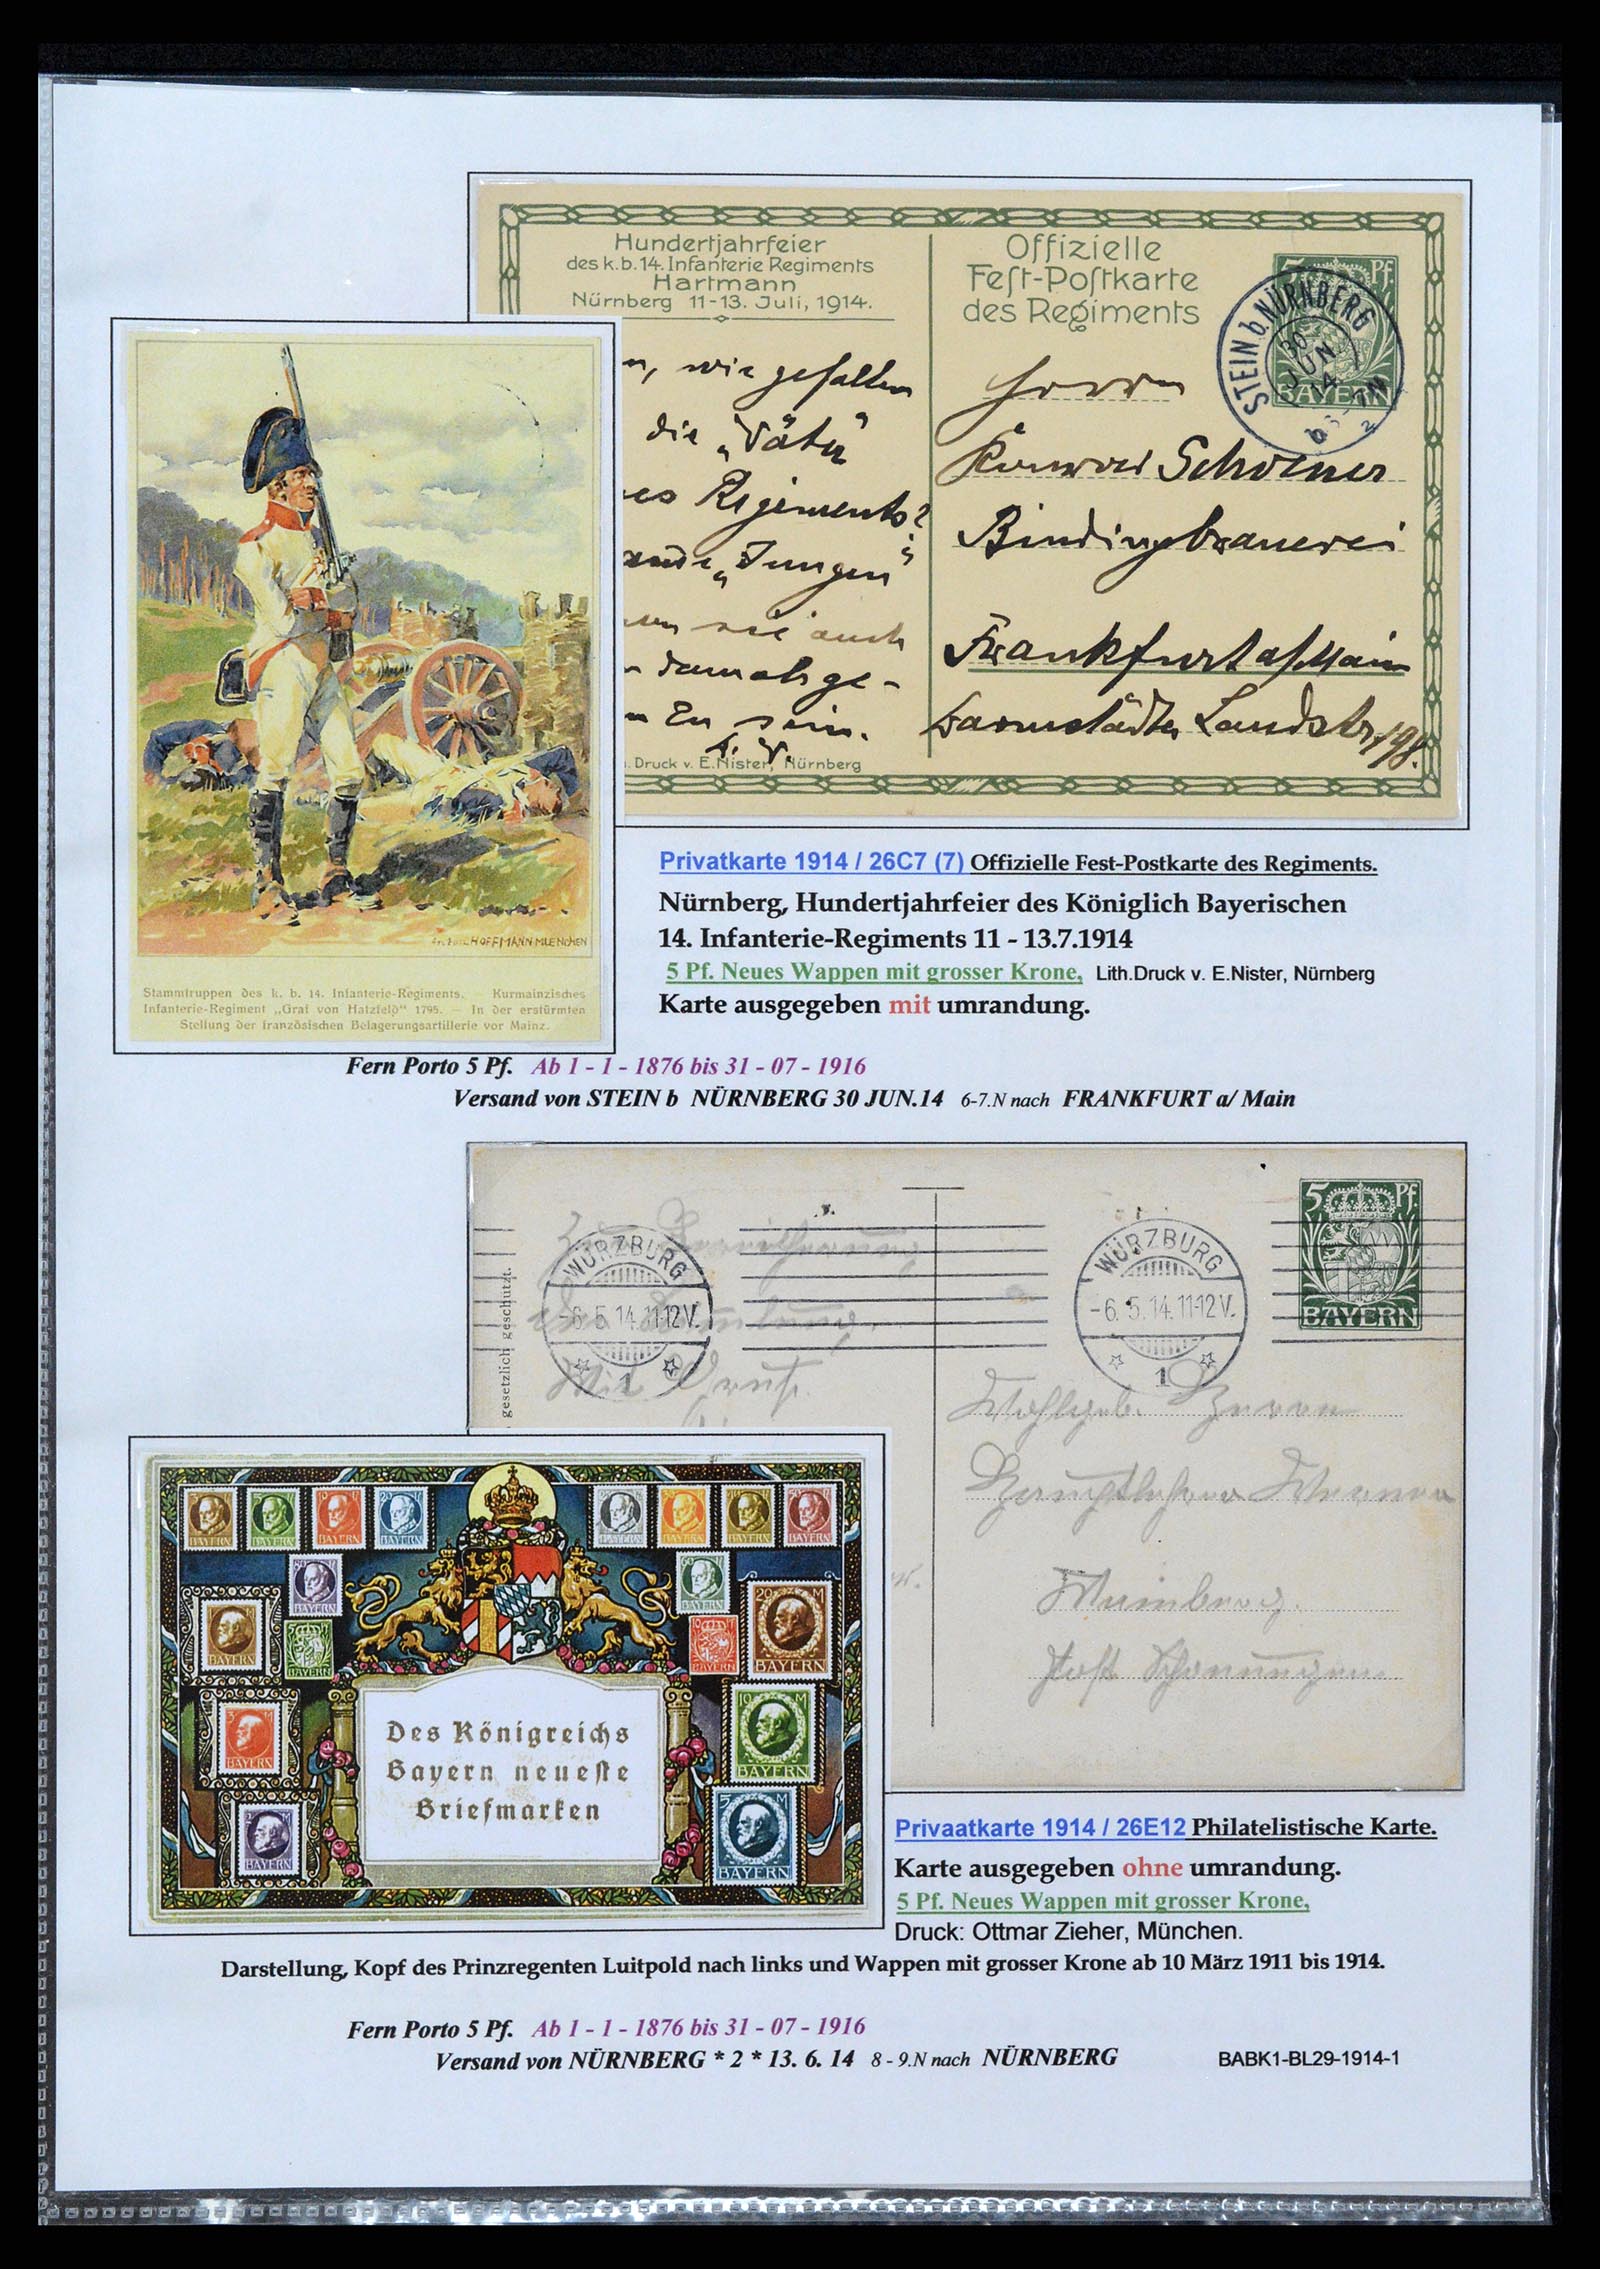 Hundertjahrfeier
des k.b. 14. Infanterie Regiments
Hartmann
Nürnberg 11-13. Juli, 1914.
Offizielle
Fest-Postkarte
des Regiments
5 Pf
BAYERN
STEIN b. NÜRNBERG
30
JUN
14
wie gefallen
die „Väter"
Regiments?
„Jungen"
sie auch
damals ge-
En sein.
Herrn
Konrad Schreiner
Bindingbrauerei
Frankfurt a/Main
Darmstädter Landstr. 198.
. Druck v. E. Nister, Nürnberg
HOFFMANN MUENCHEN
Stammtruppen des k. b. 14. Infanterie-Regiments. — Kurmainzisches
Infanterie-Regiment „Graf von Hatzfeld" 1795. — In der erstürmten
Stellung der französischen Belagerungsartillerie vor Mainz.
Privatkarte 1914 / 26C7 (7) Offizielle Fest-Postkarte des Regiments.
Nürnberg, Hundertjahrfeier des Königlich Bayerischen
14. Infanterie-Regiments 11 - 13.7.1914
5 Pf. Neues Wappen mit grosser Krone, Lith.Druck v. E.Nister, Nürnberg
Karte ausgegeben mit umrandung.
Fern Porto 5 Pf. Ab 1 - 1 - 1876 bis 31 - 07 - 1916
Versand von STEIN b NÜRNBERG 30 JUN.14 6-7.N nach FRANKFURT a/ Main
gesetzlich geschützt.
WÜRZBURG
-6.5.14.11-12V.
1
WÜRZBURG
-6.5.14.11-12V.
1
5 Pf.
BAYERN
Mit Gruß
Wohlgeb. Herrn
Hauptlehrer Werner
Mainberg.
Post Schonungen
Des Königreichs
Bayern neueste
Briefmarken
Privaatkarte 1914 / 26E12 Philatelistische Karte.
Karte ausgegeben ohne umrandung.
5 Pf. Neues Wappen mit grosser Krone,
Druck: Ottmar Zieher, München.
Darstellung, Kopf des Prinzregenten Luitpold nach links und Wappen mit grosser Krone ab 10 März 1911 bis 1914.
Fern Porto 5 Pf. Ab 1 - 1 - 1876 bis 31 - 07 - 1916
Versand von NÜRNBERG * 2 * 13. 6. 14 8 - 9.N nach NÜRNBERG
BABK1-BL29-1914-1